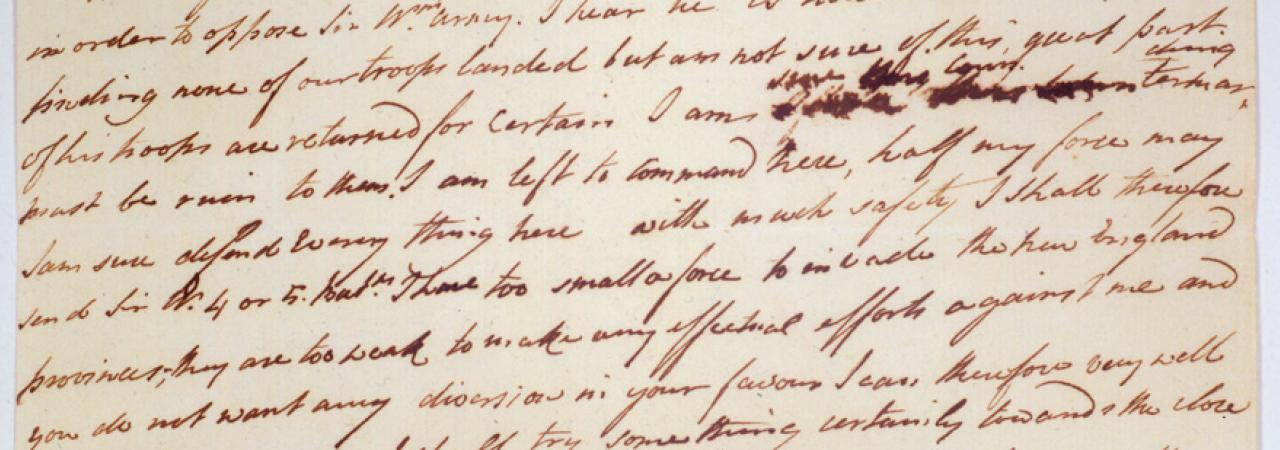 in order to oppose Sir Wm's army. I hear he is
finding none of our troops landed but am not sure of this, great part
of his troops are returned for certain I am sure this coun: ter mar,
ching
must be ruin to them. I am left to command here, half my force may
I am sure defend Every thing here with much safety I shall therefore
send Sir W. 4 or 5. Batns I have too small a force to invade the New England
provinces; they are too weak to make any effectual efforts against me and
you do not want any diversion in your favour I can therefore very well
try something certainly towards the close